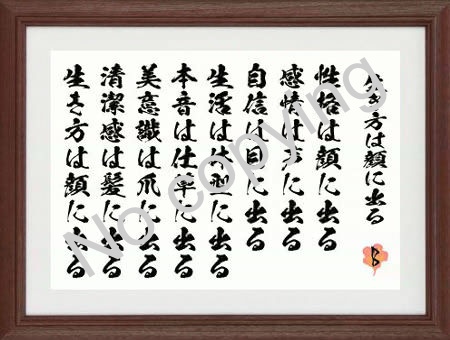 生き方は顔に出る
性格は顔に出る
感情は声に出る
自信は目に出る
生活は体型に出る
本音は仕草に出る
美意識は爪に出る
清潔感は髪に出る
生き方は顔に出る
No copying